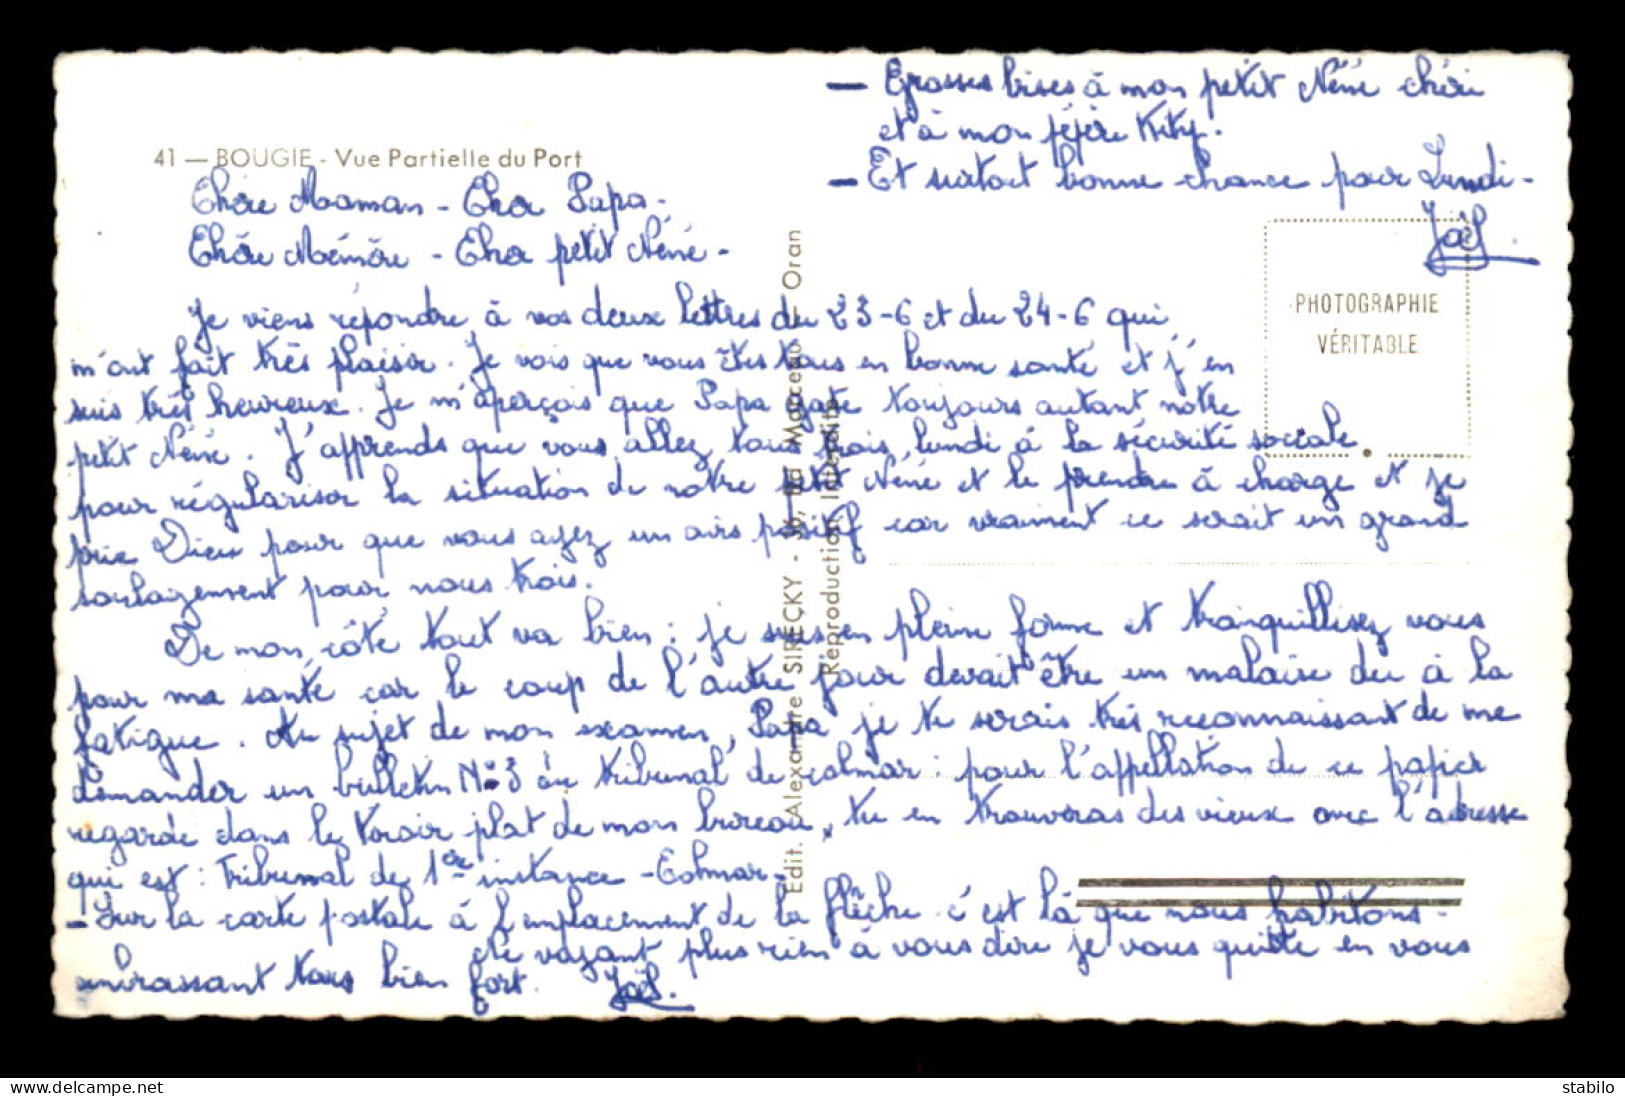 — Grosses bises à mon petit Néné chéri
et à mon pépère Kity.
— Et surtout bonne chance pour Lundi -
Joël
41 — BOUGIE - Vue Partielle du Port
Chère Maman - Cher Papa -
Chère Mémère - Cher petit Néné -
Je viens répondre à vos deux lettres du 23-6 et du 24-6 qui
m'ont fait très plaisir. Je vois que vous êtes tous en bonne santé et j'en
suis très heureux. Je m'aperçois que Papa gate toujours autant notre
petit Néné. J'apprends que vous allez tous trois, lundi à la sécurité sociale
pour régulariser la situation de notre petit Néné et le prendre à charge et je
prie Dieu pour que vous ayez un avis positif car vraiment ce serait un grand
soulagement pour nous trois.
De mon côté tout va bien : je suis en pleine forme et tranquillisez vous
pour ma santé car le coup de l'autre jour devait être un malaise du à la
fatigue. Au sujet de mon examen, Papa je te serais très reconnaissant de me
demander un bulletin N°3 au tribunal de colmar : pour l'appellation de ce papier
regarde dans le tiroir plat de mon bureau, tu en trouveras des vieux avec l'adresse
qui est : Tribunal de 1ère instance - Colmar -
- Sur la carte postale à l'emplacement de la flèche c'est là que nous habitons -
Ne voyant plus rien à vous dire je vous quitte en vous
embrassant tous bien fort. Joël.
PHOTOGRAPHIE
VÉRITABLE
Edit. Alexandre SIRECKY - 36, Bd Marceau - Oran
Reproduction Interdite
www.delcampe.net
stabilo